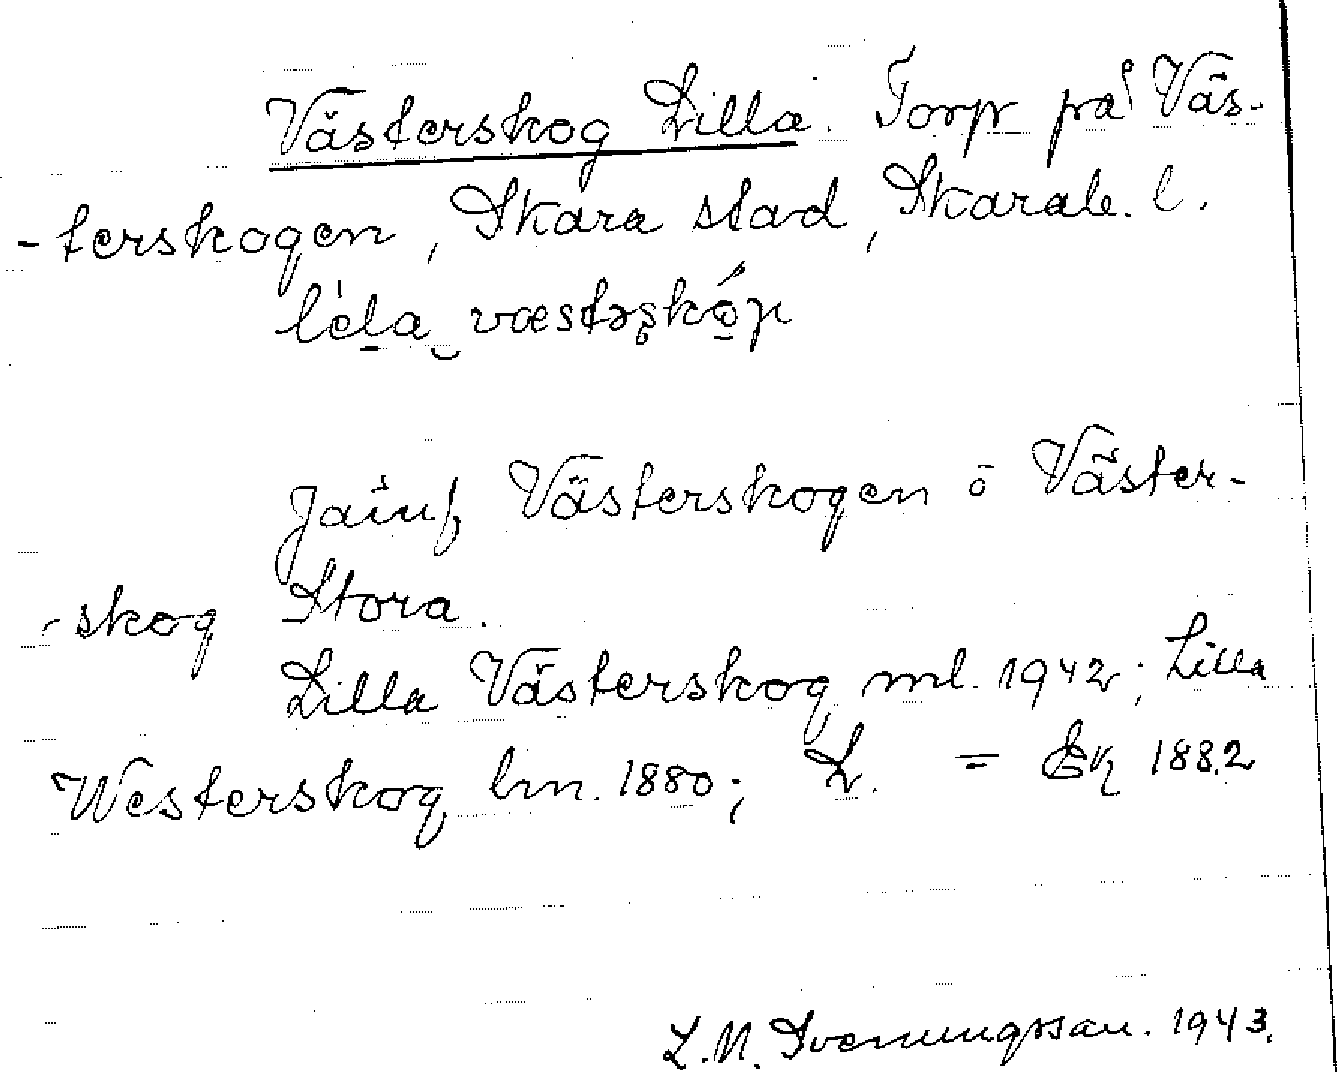 Västerskog Lilla. Torp på Väs-
-terskogen, Skara stad, Skarab. l.
Jämf Västerskogen o Väster-
-skog Stora.
Lilla Västerskog ml. 1942; Lilla
Westerskog lm. 1880; L. = Ek 1882
L.N. Svenungsson. 1943.